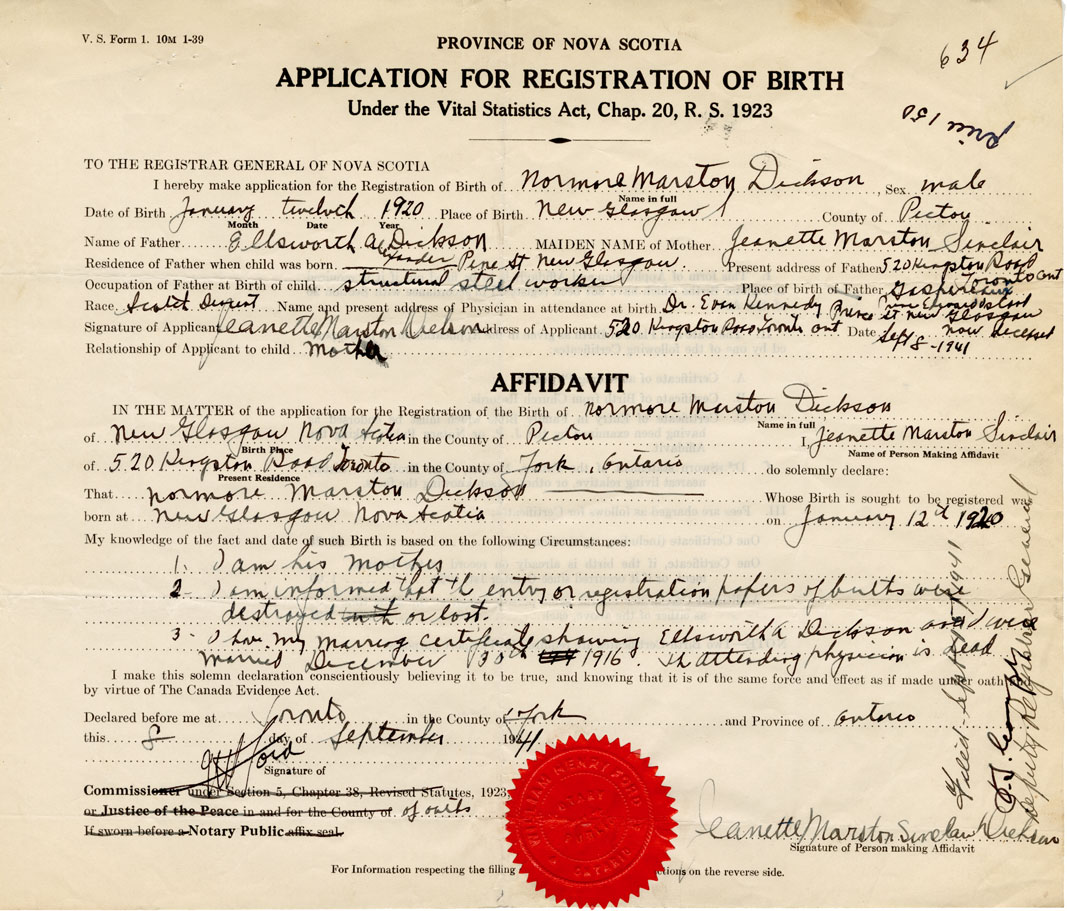 V. S. Form 1. 10M 1-39
634
PROVINCE OF NOVA SCOTIA
APPLICATION FOR REGISTRATION OF BIRTH
Under the Vital Statistics Act, Chap. 20, R. S. 1923
150
TO THE REGISTRAR GENERAL OF NOVA SCOTIA
I hereby make application for the Registration of Birth of Normore Marston Dickson, Sex male
Name in full
Date of Birth January twelvth 1920 Place of Birth New Glasgow County of Pictou
Month Date Year
Name of Father Ellsworth Alexander Dickson MAIDEN NAME of Mother Jeanette Marston Sinclair
Residence of Father when child was born Pine St New Glasgow Present address of Father 520 Kingston Road Toronto Ont
Occupation of Father at Birth of child structural steel worker Place of birth of Father
Race Scotch Descent Name and present address of Physician in attendance at birth Dr. Evan Kennedy Prince St New Glasgow now deceased
Signature of Applicant Jeanette Marston Dickson Address of Applicant 520 Kingston Road Toronto Ont Date Sept 8-1941
Relationship of Applicant to child Mother
AFFIDAVIT
IN THE MATTER of the application for the Registration of the Birth of Normore Marston Dickson
Name in full
of New Glasgow Nova Scotia in the County of Pictou I, Jeanette Marston Sinclair
Birth Place Name of Person Making Affidavit
of 520 Kingston Road Toronto in the County of York, Ontario do solemnly declare:
Present Residence
That Normore Marston Dickson Whose Birth is sought to be registered was
born at New Glasgow Nova Scotia on January 12th 1920
My knowledge of the fact and date of such Birth is based on the following Circumstances:
1. I am his mother
2. I am informed that the entry or registration papers of births were
destroyed or lost.
3. I have my marriag certificate showing Ellsworth A Dickson and I were
married December 30th 1916. The attending physician is dead
I make this solemn declaration conscientiously believing it to be true, and knowing that it is of the same force and effect as if made under oath and
by virtue of The Canada Evidence Act.
Declared before me at Toronto in the County of York and Province of Ontario
this 8 day of September 1941
Signature of
Commissioner under Section 5, Chapter 38, Revised Statutes, 1923,
or Justice of the Peace in and for the County of of oaths
If sworn before a Notary Public affix seal.
WILLIAM HENRY FORD
NOTARY
ONTARIO
Jeanette Marston Sinclair Dickson
Signature of Person making Affidavit
For Information respecting the filling
ctions on the reverse side.
Filed - Sept 1941
Deputy Registrar General